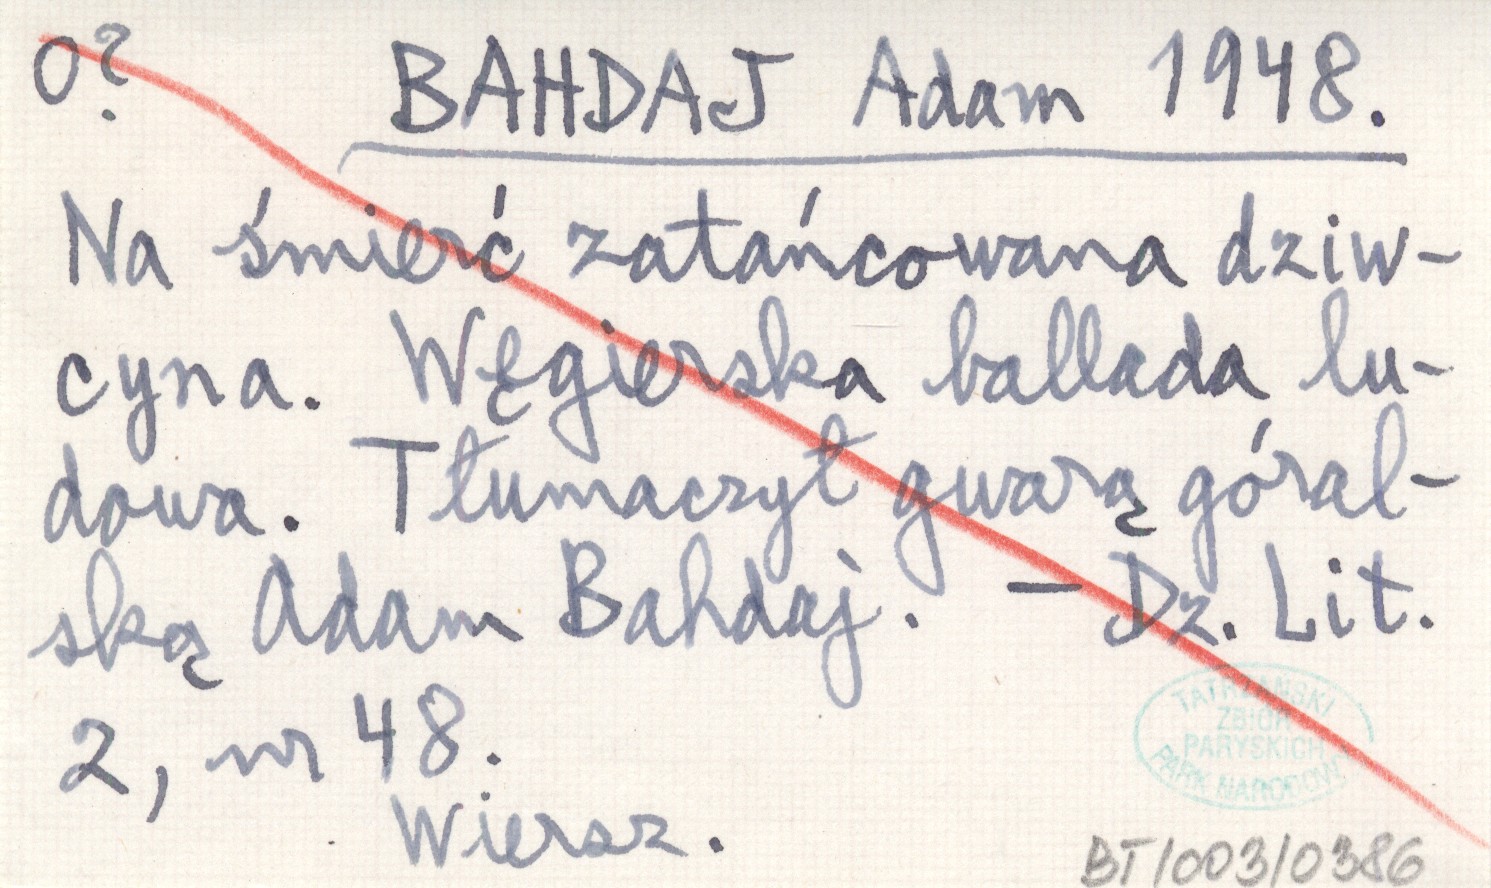 O?
BAHDAJ Adam 1948.
Na śmierć zatańcowana dziw-
cyna. Węgierska ballada lu-
dowa. Tłumaczył gwarą góral-
ską Adam Bahdaj. — Dz. Lit.
2, nr 48.
Wiersz.
TATRZAŃSKI
ZBIÓR
PARYSKICH
PARK NARODOWY
BT/003/0386